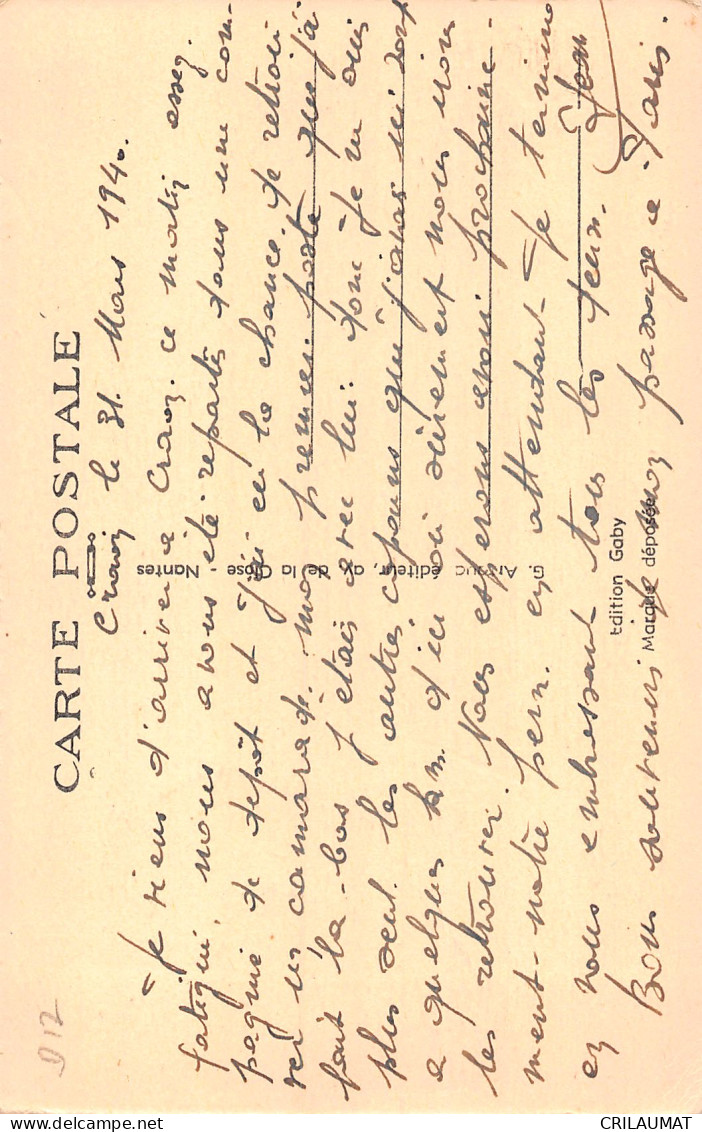 CARTE POSTALE
Craon le 31. Mars 1940.
Je viens d'arriver a Craon. ce matin assez
fatigué, nous avons été repartis dans une com-
pagnie de depôt et j'ai eu la chance de retrou-
ver un camarade. mon premier poste que j'ai
fait la-bas j'étais avec lui. donc je m'ennuie
plus seul. les autres copains que j'avais ici sont
a quelques km d'ici ou surement nous irons
les retrouver. Nous esperons avoir prochaine-
ment notre perm. en attendant je termine
en vous embrassant tous les deux.
Bons souvenirs de mon passage a Paris.
G. Artaud éditeur, av de la Close - Nantes
Edition Gaby
Marque déposée
D12
CRILAUMAT